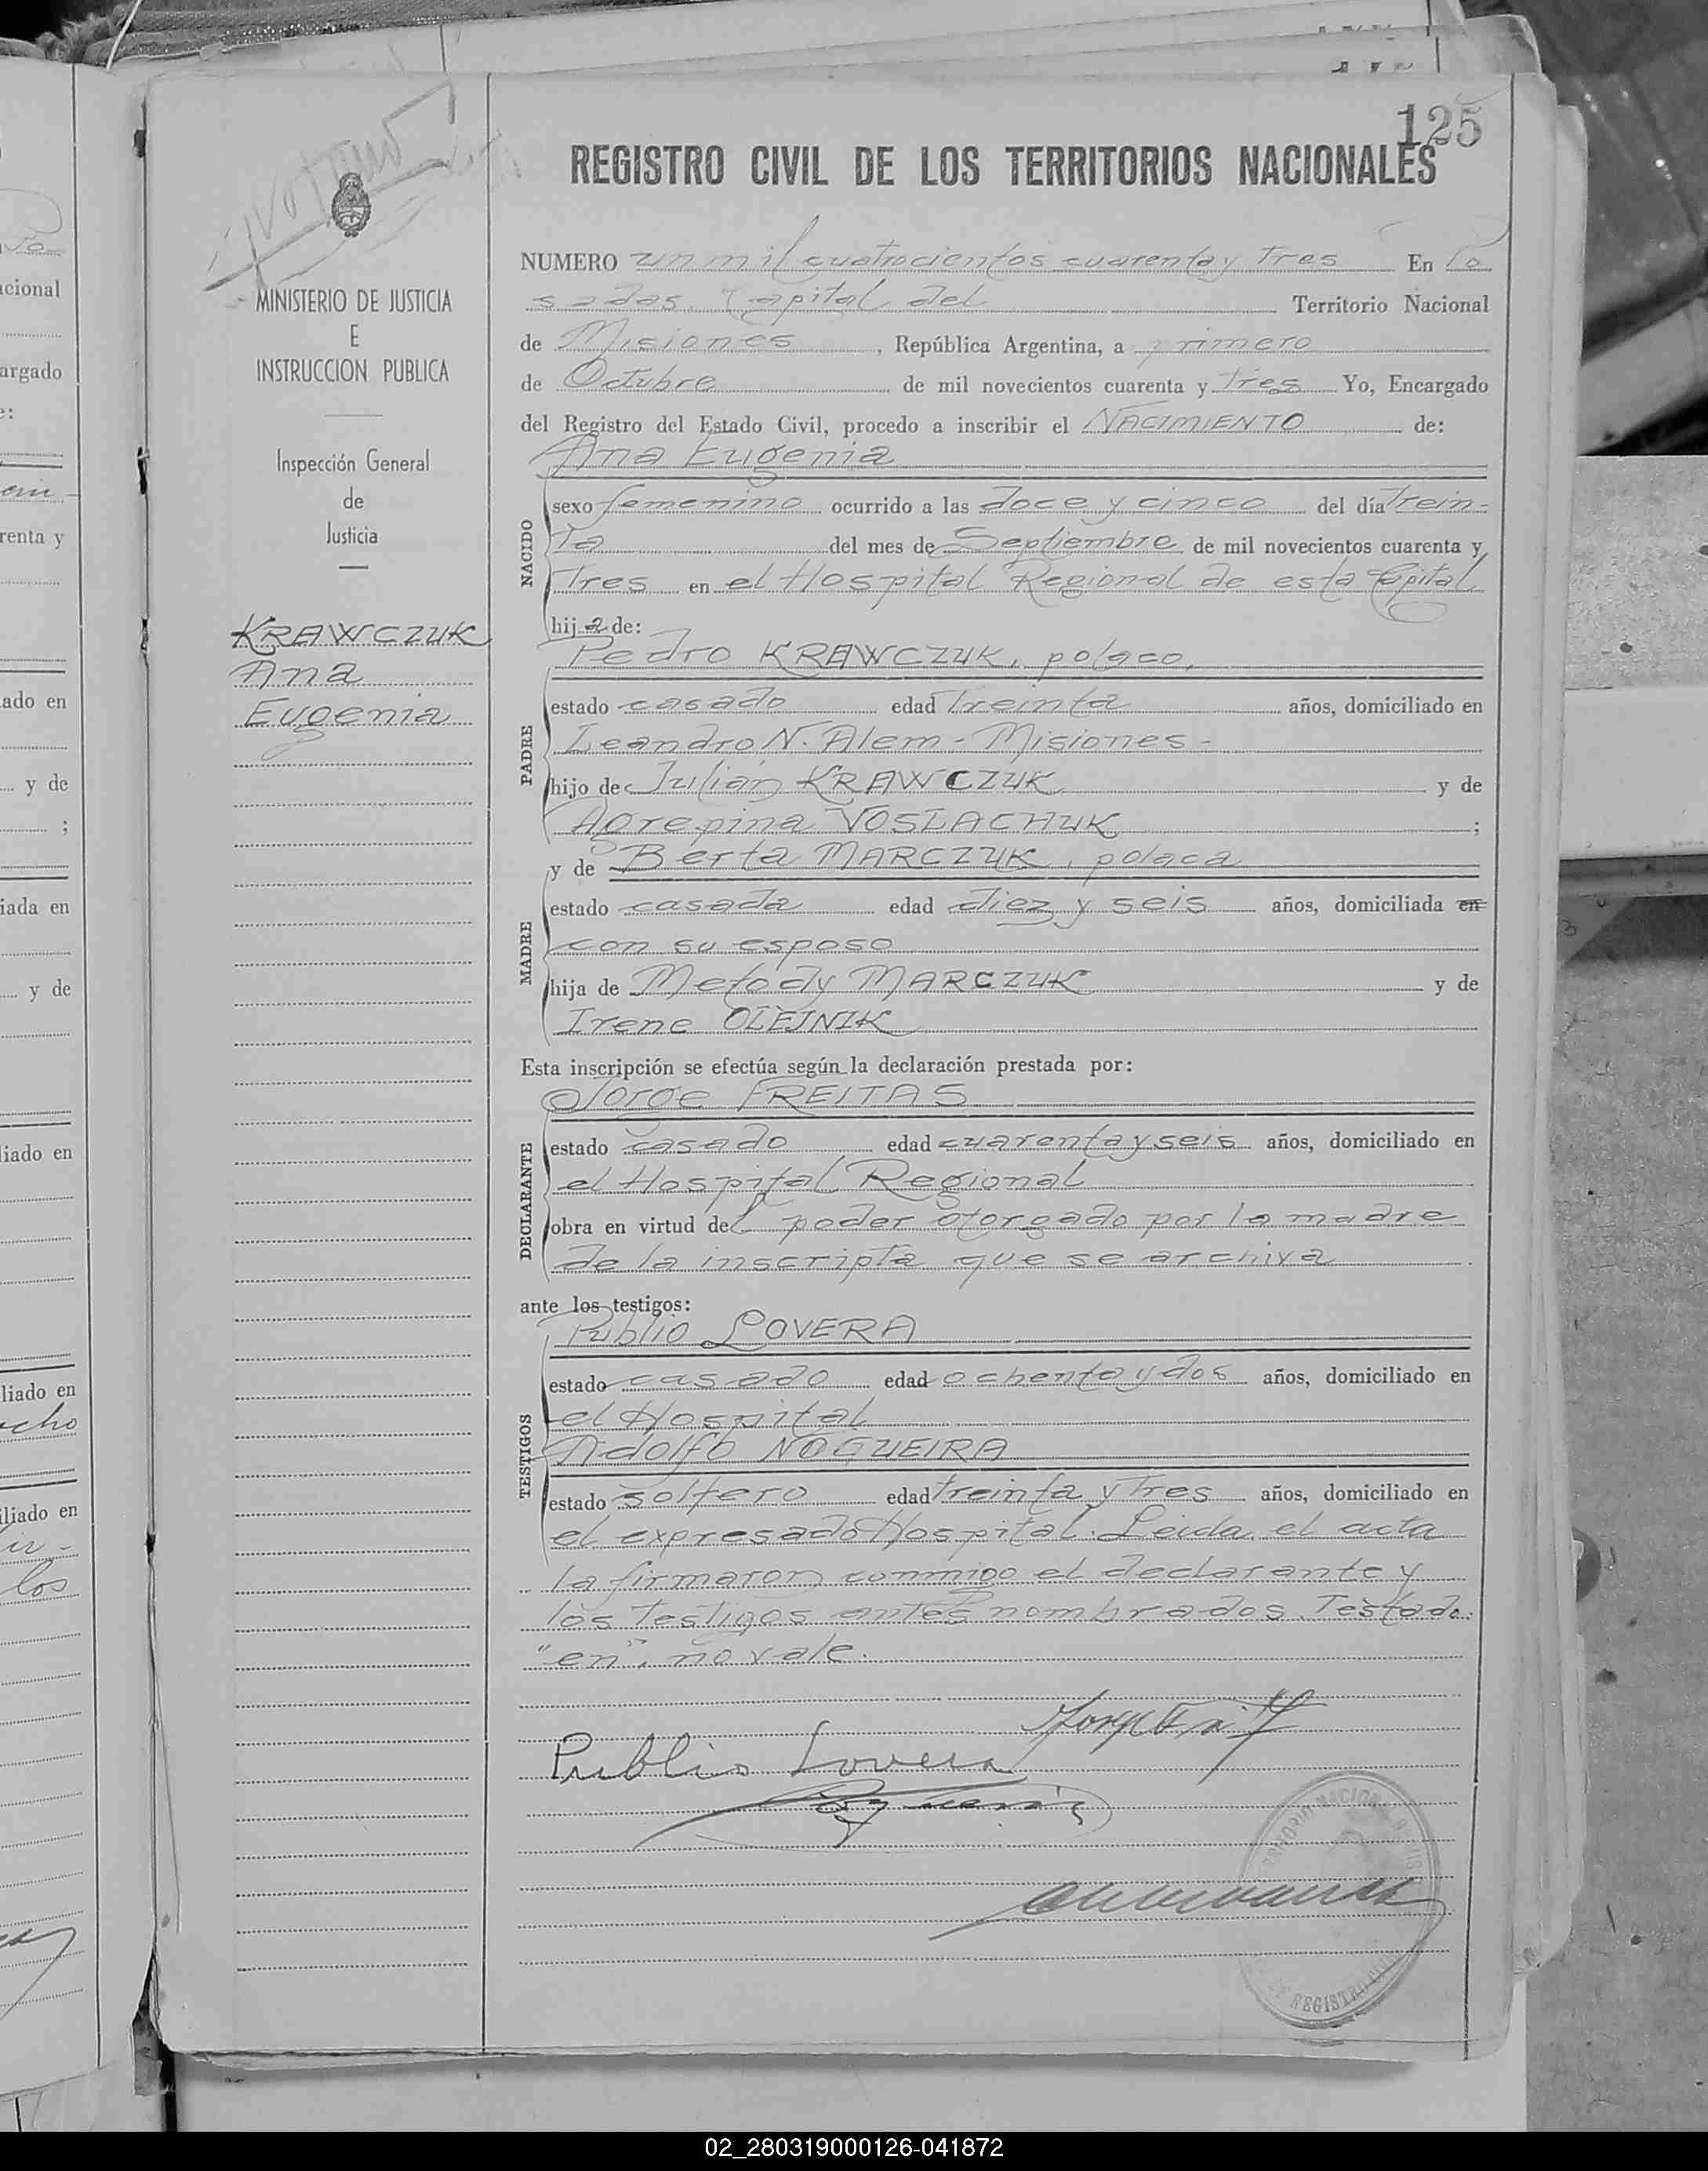 125
REGISTRO CIVIL DE LOS TERRITORIOS NACIONALES
MINISTERIO DE JUSTICIA
E
INSTRUCCION PUBLICA
Inspección General
de
Justicia
KRAWCZUK
Ana
Eugenia
NUMERO un mil cuatrocientos cuarenta y Tres En Po
sadas. Capital del Territorio Nacional
de Misiones, República Argentina, a primero
de Octubre de mil novecientos cuarenta y Tres Yo, Encargado
del Registro del Estado Civil, procedo a inscribir el NACIMIENTO de:
Ana Eugenia
NACIDO
sexo femenino ocurrido a las doce y cinco del día Trein-
Ta del mes de Septiembre de mil novecientos cuarenta y
Tres en el Hospital Regional de esta Capital
hija de:
Pedro KRAWCZUK, polaco,
PADRE
estado casado edad Treinta años, domiciliado en
Leandro N. Alem - Misiones -
hijo de Julián KRAWCZUK y de
Agrepina VOSLACHUK ;
y de Berta MARCZUK, polaca
MADRE
estado casada edad diez y seis años, domiciliada en
con su esposo
hija de Metody MARCZUK y de
Irene OLEJNIK
Esta inscripción se efectúa según la declaración prestada por:
Jorge FREITAS
DECLARANTE
estado casado edad cuarenta y seis años, domiciliado en
el Hospital Regional
obra en virtud del poder otorgado por la madre
de la inscripta que se archiva.
ante los testigos:
Publio LOVERA
TESTIGOS
estado casado edad ochenta y dos años, domiciliado en
el Hospital
Adolfo NOGUEIRA
estado soltero edad treinta y Tres años, domiciliado en
el expresado Hospital. Leida el acta
la firmaron conmigo el declarante y
los Testigos antes nombrados. Testado:
"en", no vale.
Publio Lovera
02_280319000126-041872